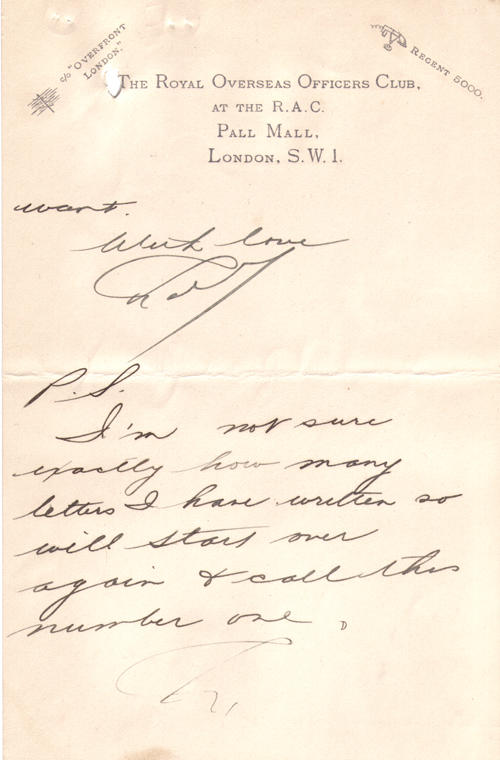 c/o "OVERFRONT
LONDON."
REGENT 5000.
THE ROYAL OVERSEAS OFFICERS CLUB,
AT THE R.A.C.
PALL MALL,
LONDON, S.W.1.
want.
With love
P.S.
I'm not sure
exactly how many
letters I have written so
will start over
again & call this
number one.
R.